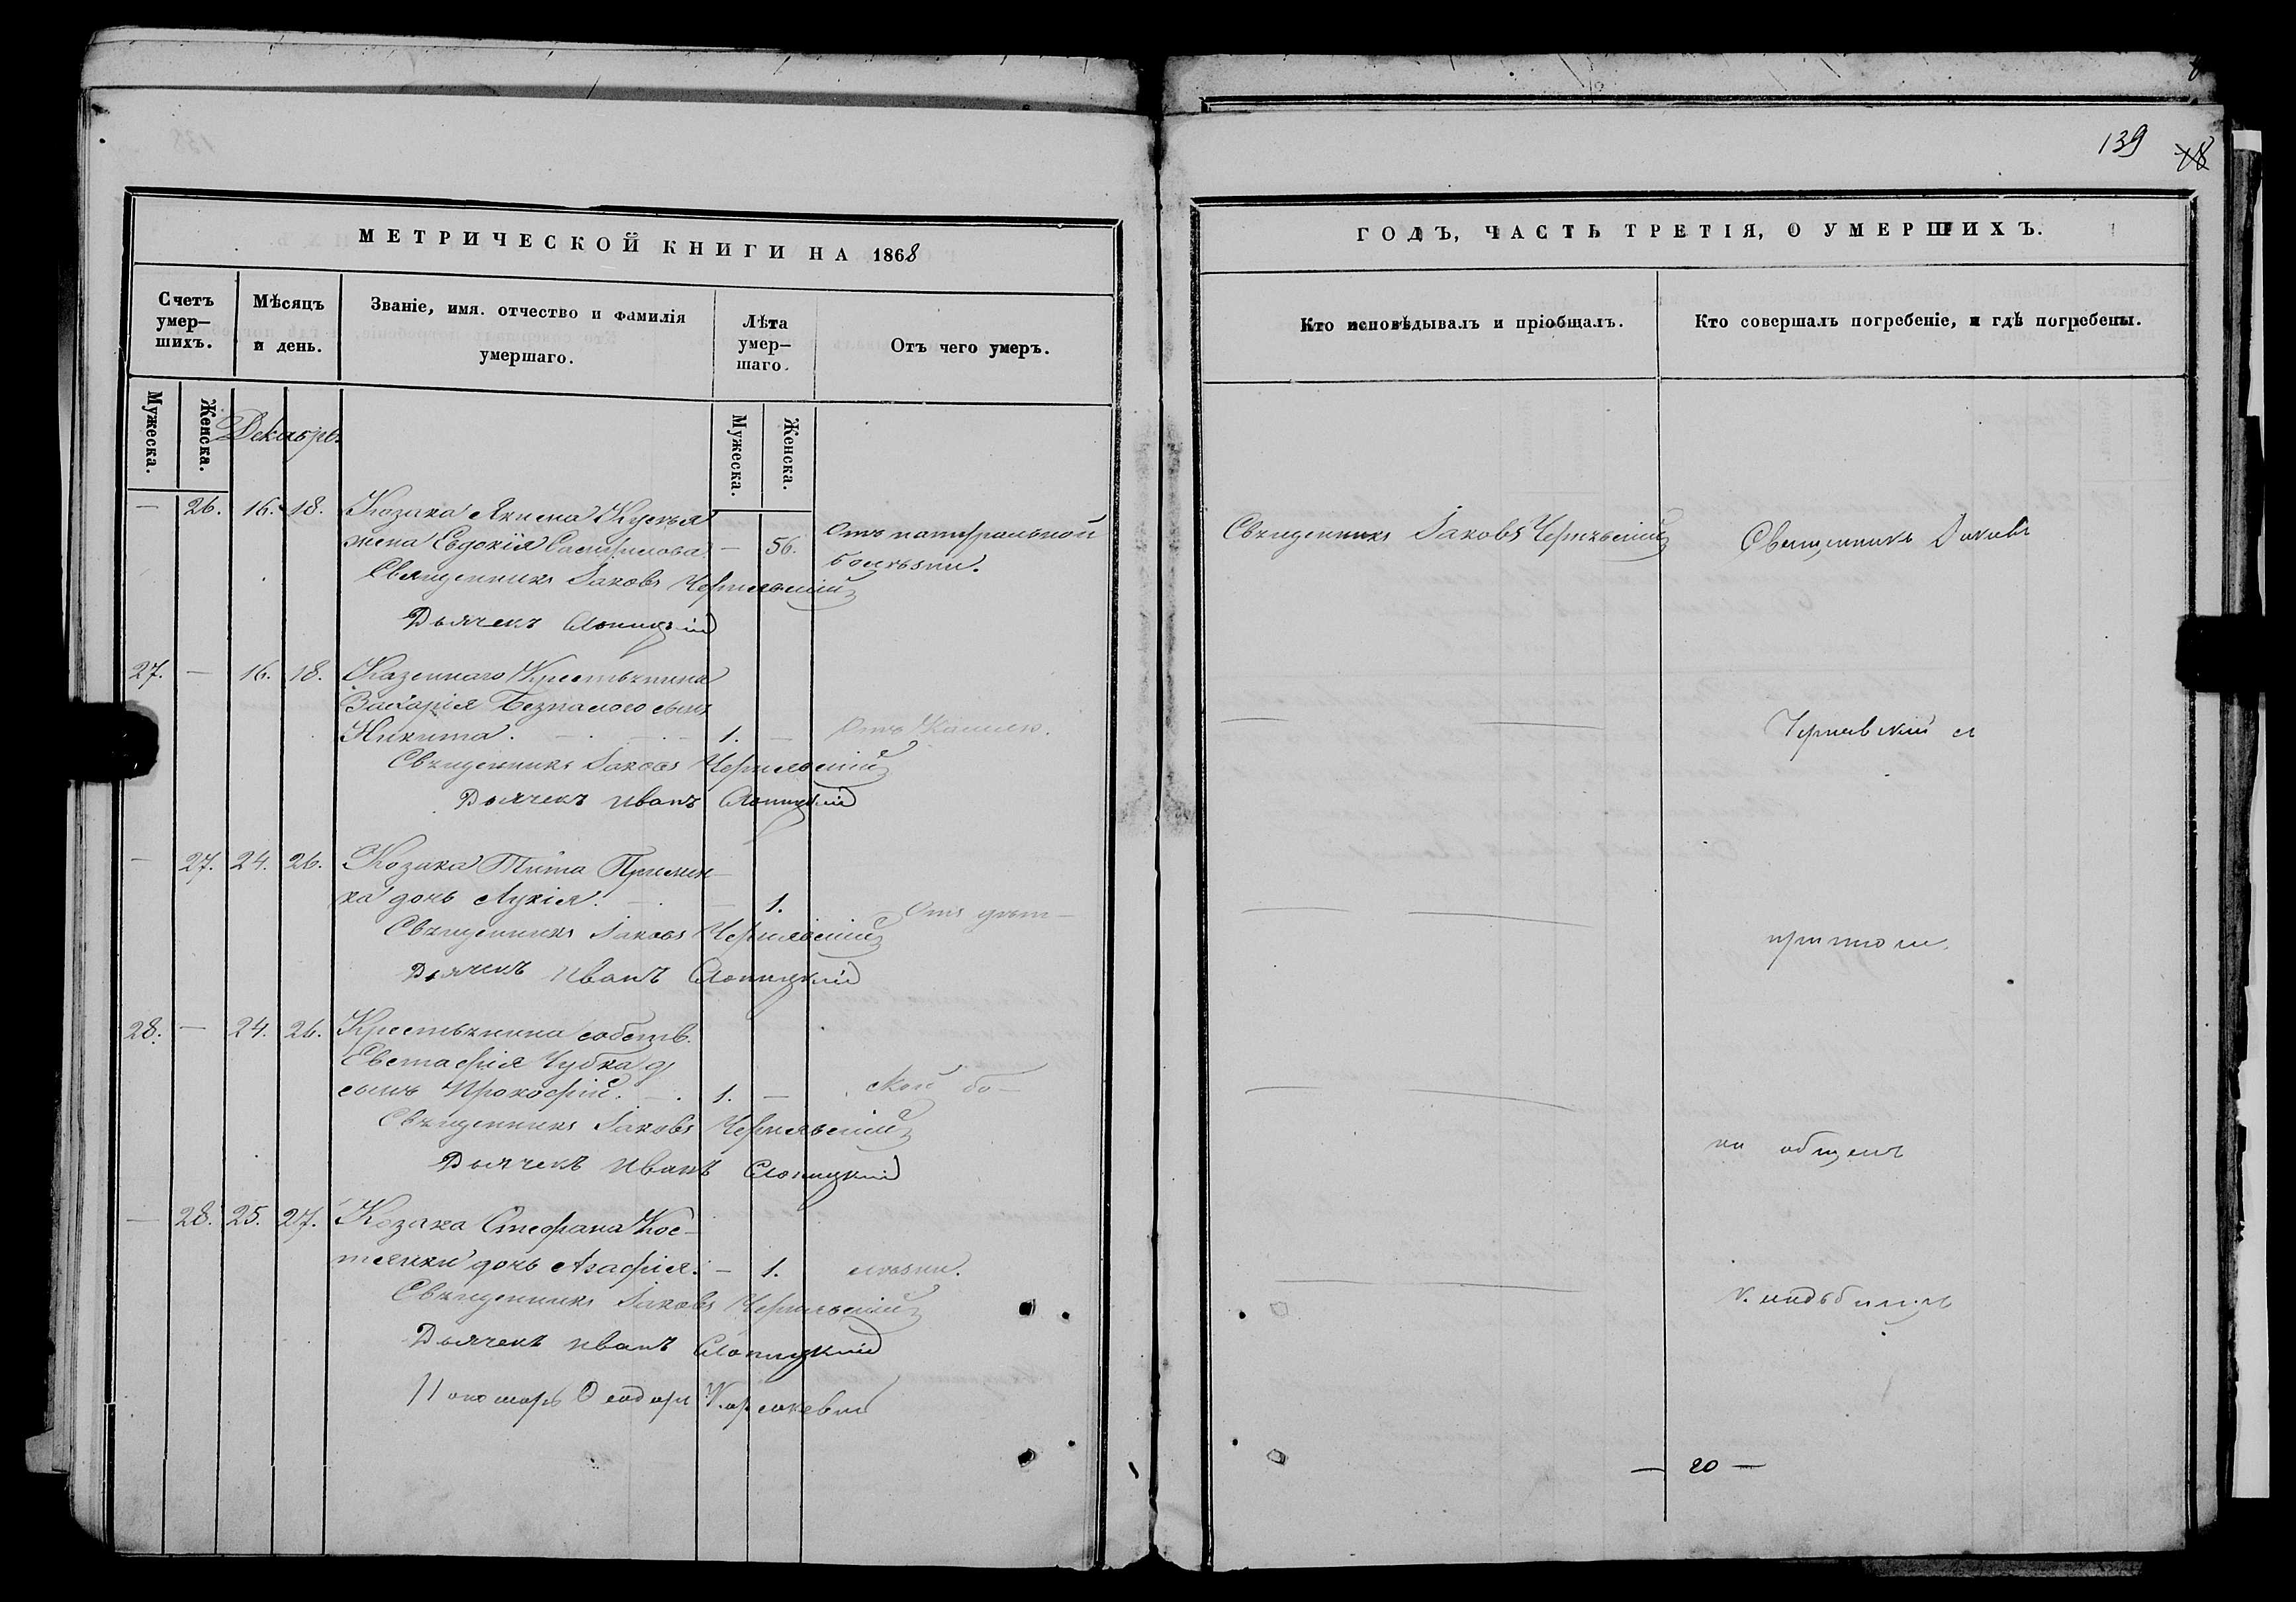 139
18
МЕТРИЧЕСКОЙ КНИГИ НА 1868
ГОДЪ, ЧАСТЬ ТРЕТІЯ, О УМЕРШИХЪ.
Счетъ умер-
шихъ.
Мѣсяцъ
и день.
Званіе, имя. отчество и фамилія
умершаго.
Лѣта
умер-
шаго.
Отъ чего умеръ.
Кто исповѣдывалъ и пріобщалъ.
Кто совершалъ погребеніе, и гдѣ погребены.
Мужеска.
Женска.
Декабрь
Мужеска.
Женска.
— 26. 16. 18. Козака Якима
жена Евдокія — 56. Отъ катаральной
болѣзни.
Священникъ Іаковъ Чернявскій
Священникъ Іаковъ
Священникъ Іаковъ Чернявскій
Дьячекъ Слоницкій
27. — 16. 18. Казеннаго Крестьянина
Захарія Безпалого сынъ
Никита. 1. — Отъ Кашлю.
Чернявскій с
Священникъ Іаковъ Чернявскій
Дьячекъ Иванъ Слоницкій
— 27. 24. 26. Козака Тита
ка дочь Лукія. — 1. Отъ дѣт-
Священникъ Іаковъ Чернявскій
причтомъ
Дьячекъ Иванъ Слоницкій
28. — 24. 26. Крестьянина собств.
Евстафія Чубка
сынъ Прокофій. 1. — ской бо-
Священникъ Іаковъ Чернявскій
на общемъ
Дьячекъ Иванъ Слоницкій
— 28. 25. 27. Козака Стефана Кос-
тенки дочь Агафія. — 1. лѣзни.
Священникъ Іаковъ Чернявскій
кладбищѣ
Дьячекъ Иванъ Слоницкій
Пономарь
— 20 —